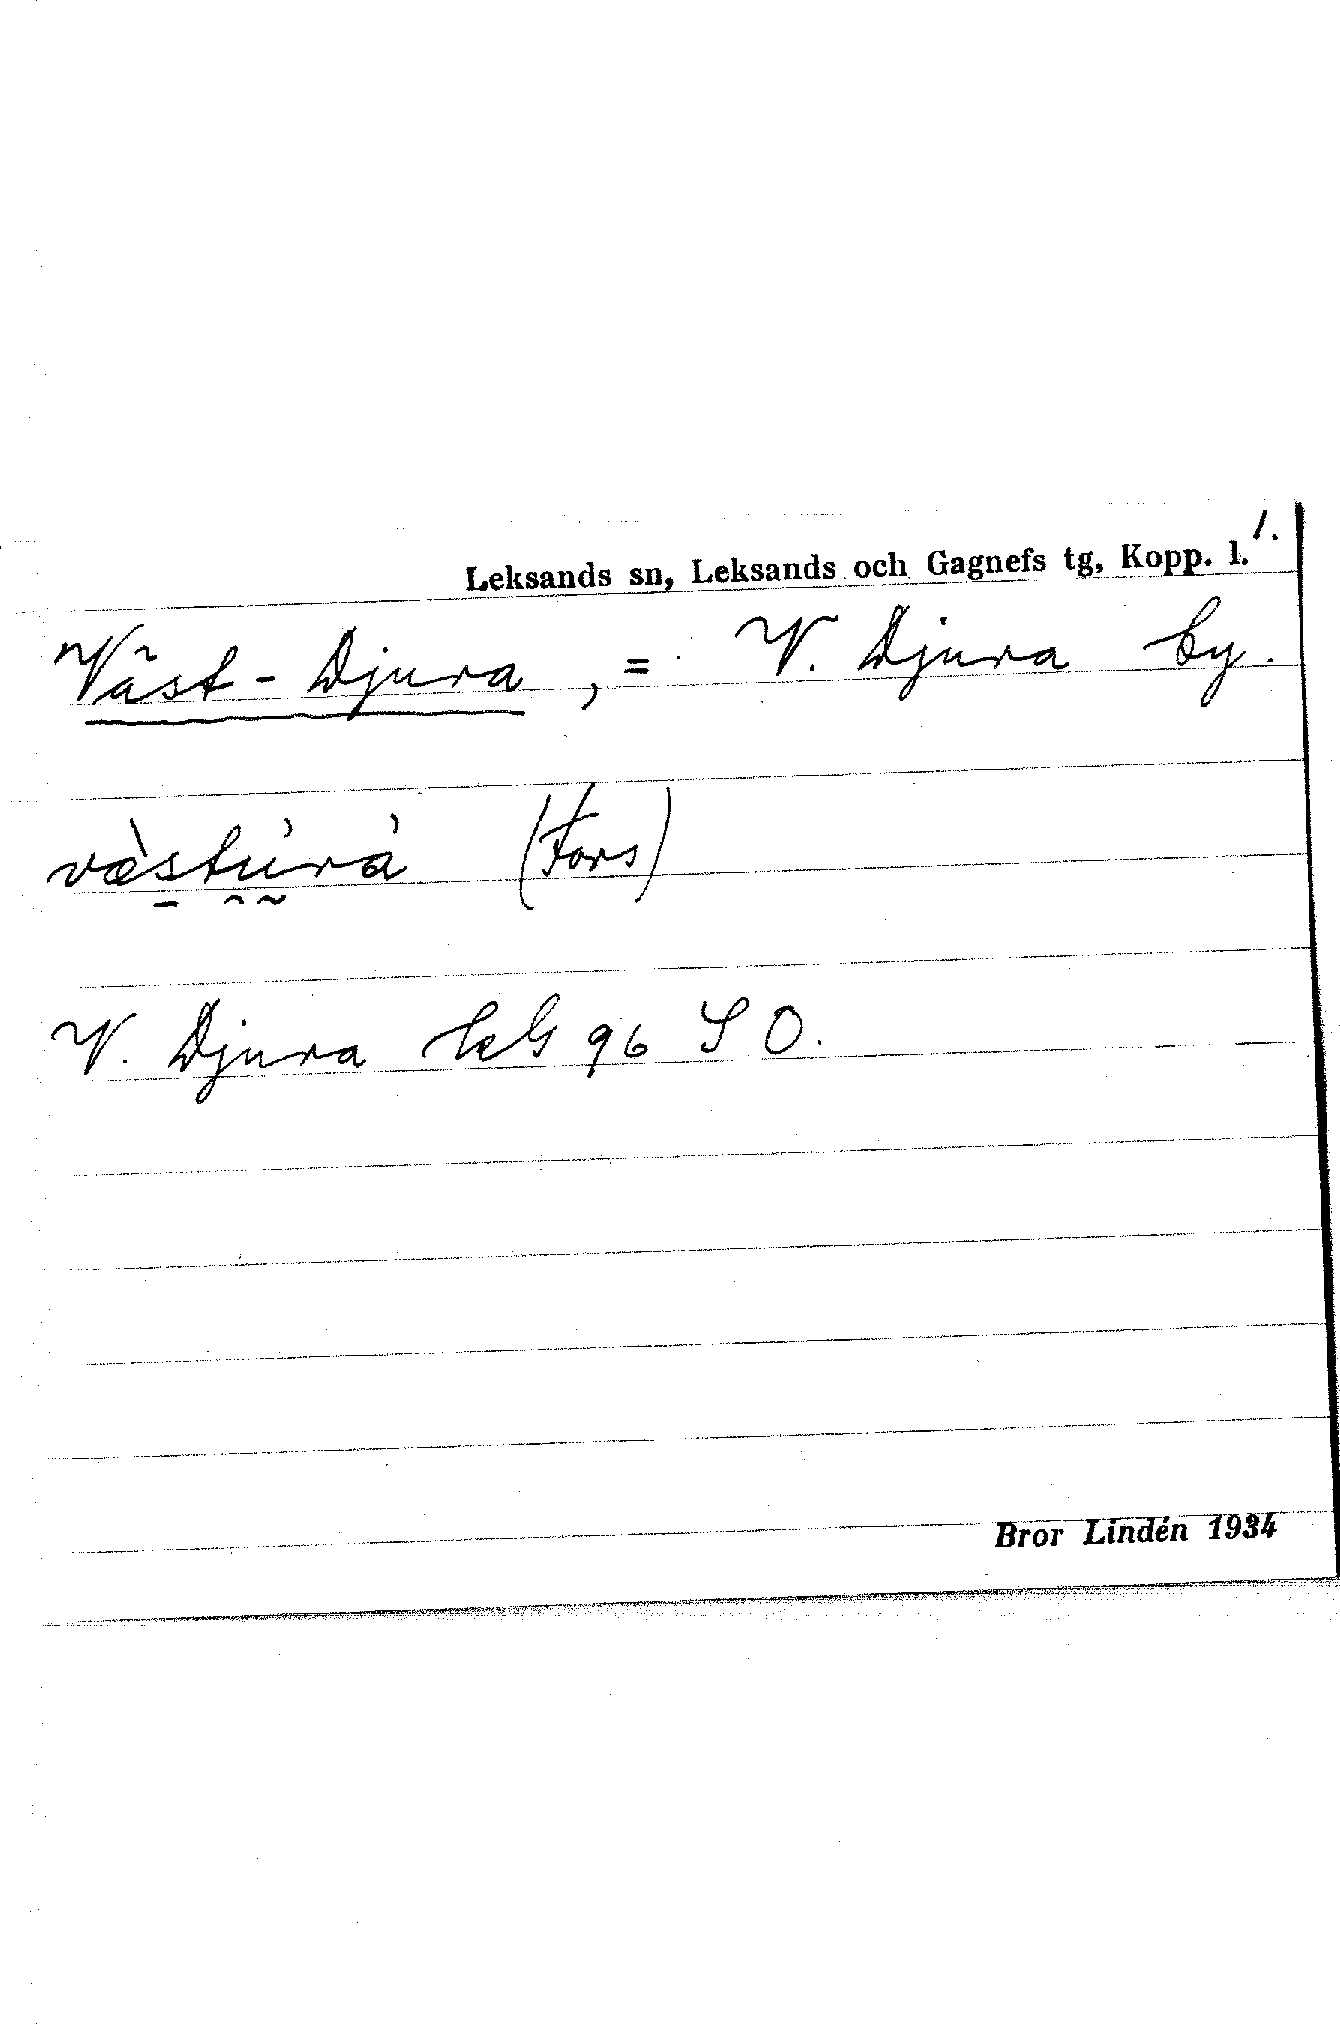 1.
Leksands sn, Leksands och Gagnefs tg, Kopp. l.
Väst-Djura, = V. Djura by.
væ̀stùrà (Fors)
V. Djura 96 S O.
Bror Lindén 1934